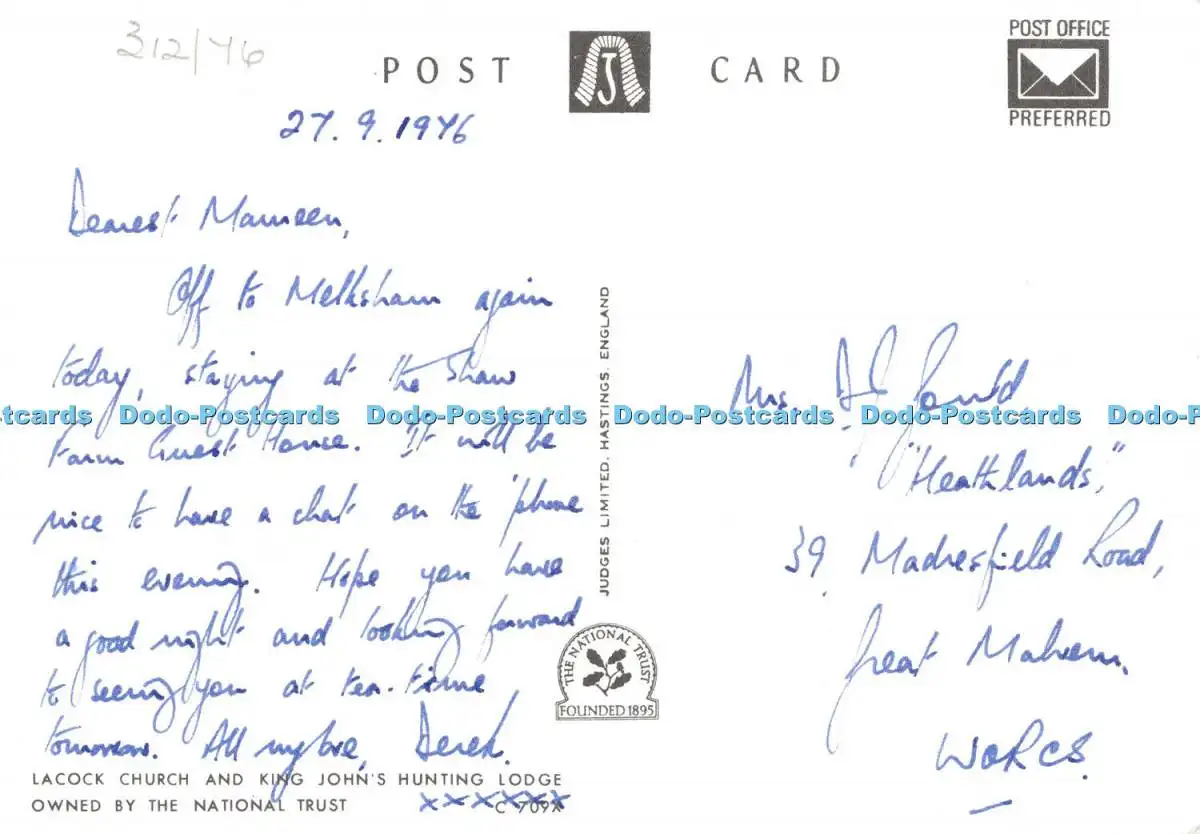 312/76
POST CARD
POST OFFICE
PREFERRED
27.9.1976
Dearest Maureen,
Off to Melksham again
today, staying at the Shaw
Farm Guest House. It will be
nice to have a chat on the 'phone
this evening. Hope you have
a good night and looking forward
to seeing you at tea-time
tomorrow. All my love, Derek.
xxxxxx
LACOCK CHURCH AND KING JOHN'S HUNTING LODGE
OWNED BY THE NATIONAL TRUST C 709X
JUDGES LIMITED, HASTINGS, ENGLAND
THE NATIONAL TRUST
FOUNDED 1895
Mrs.
"Heathlands,"
39, Madresfield Road,
Great Malvern.
WORCS.
Dodo-Postcards Dodo-Postcards Dodo-Postcards Dodo-Postcards